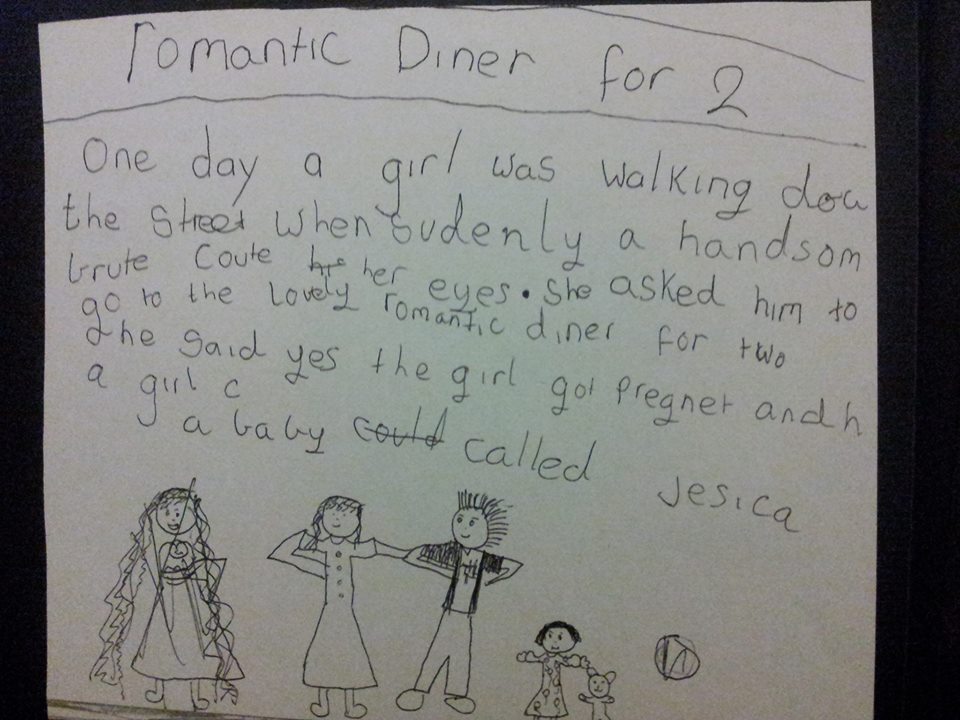 romantic Diner for 2
One day a girl was walking dow
the street when sudenly a handsom
brute coute her eyes. She asked him to
go to the lovely romantic diner for two
he said yes the girl got pregnet and h
a girl c
a baby could called Jesica